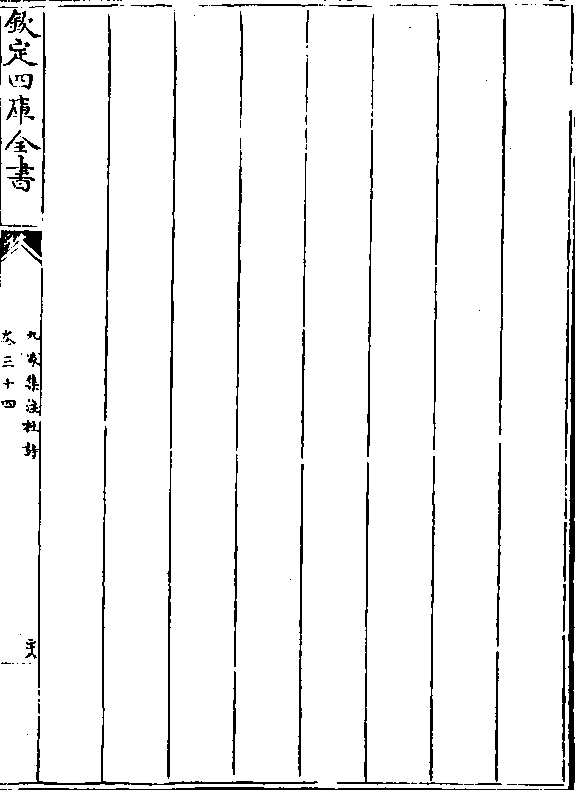 欽定四庫全書
九家集注杜詩
卷三十四